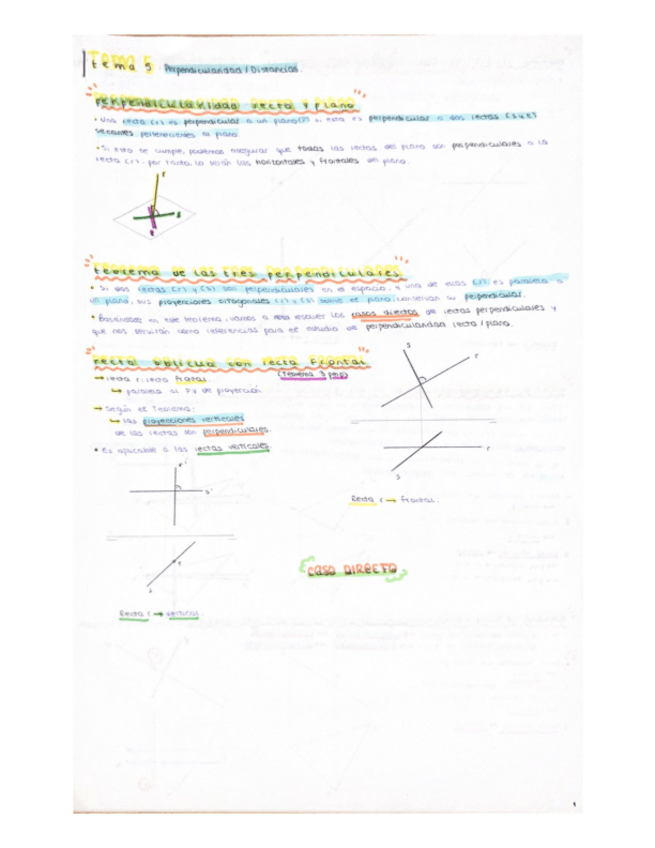 Tema 5 Perpendicularidad / Distancias.
Perpendicularidad recta y plano
• Una recta (r) es perpendicular a un plano (P) si esta es perpendicular a dos rectas (s y t)
secantes pertenecientes al plano
• Si esto se cumple, podemos asegurar que todas las rectas del plano son perpendiculares a la
recta (r), por tanto, lo serán las horizontales y frontales del plano.
r
Teorema de las tres perpendiculares.
• Si dos rectas (r) y (s) son perpendiculares en el espacio, y una de ellas (r) es paralela a
un plano, sus proyecciones ortogonales (r) y (s) sobre el plano, conservan su perpendicular.
• Basándose en este teorema, vamos a resolver los casos directos de rectas perpendiculares y
que nos servirán como referencias para el estudio de perpendicularidad recta / plano.
recta oblicua con recta Frontal
(Teorema 3 perp)
→ recta r: recta frontal
↳ paralela al P.V de proyección
→ Según el Teorema:
↳ las proyecciones verticales
de las rectas son perpendiculares.
• Es aplicable a las rectas verticales.
s
r
r
s
Recta r → Frontal.
r'
s'
r
s
Recta r → vertical.
CASO DIRECTO
1